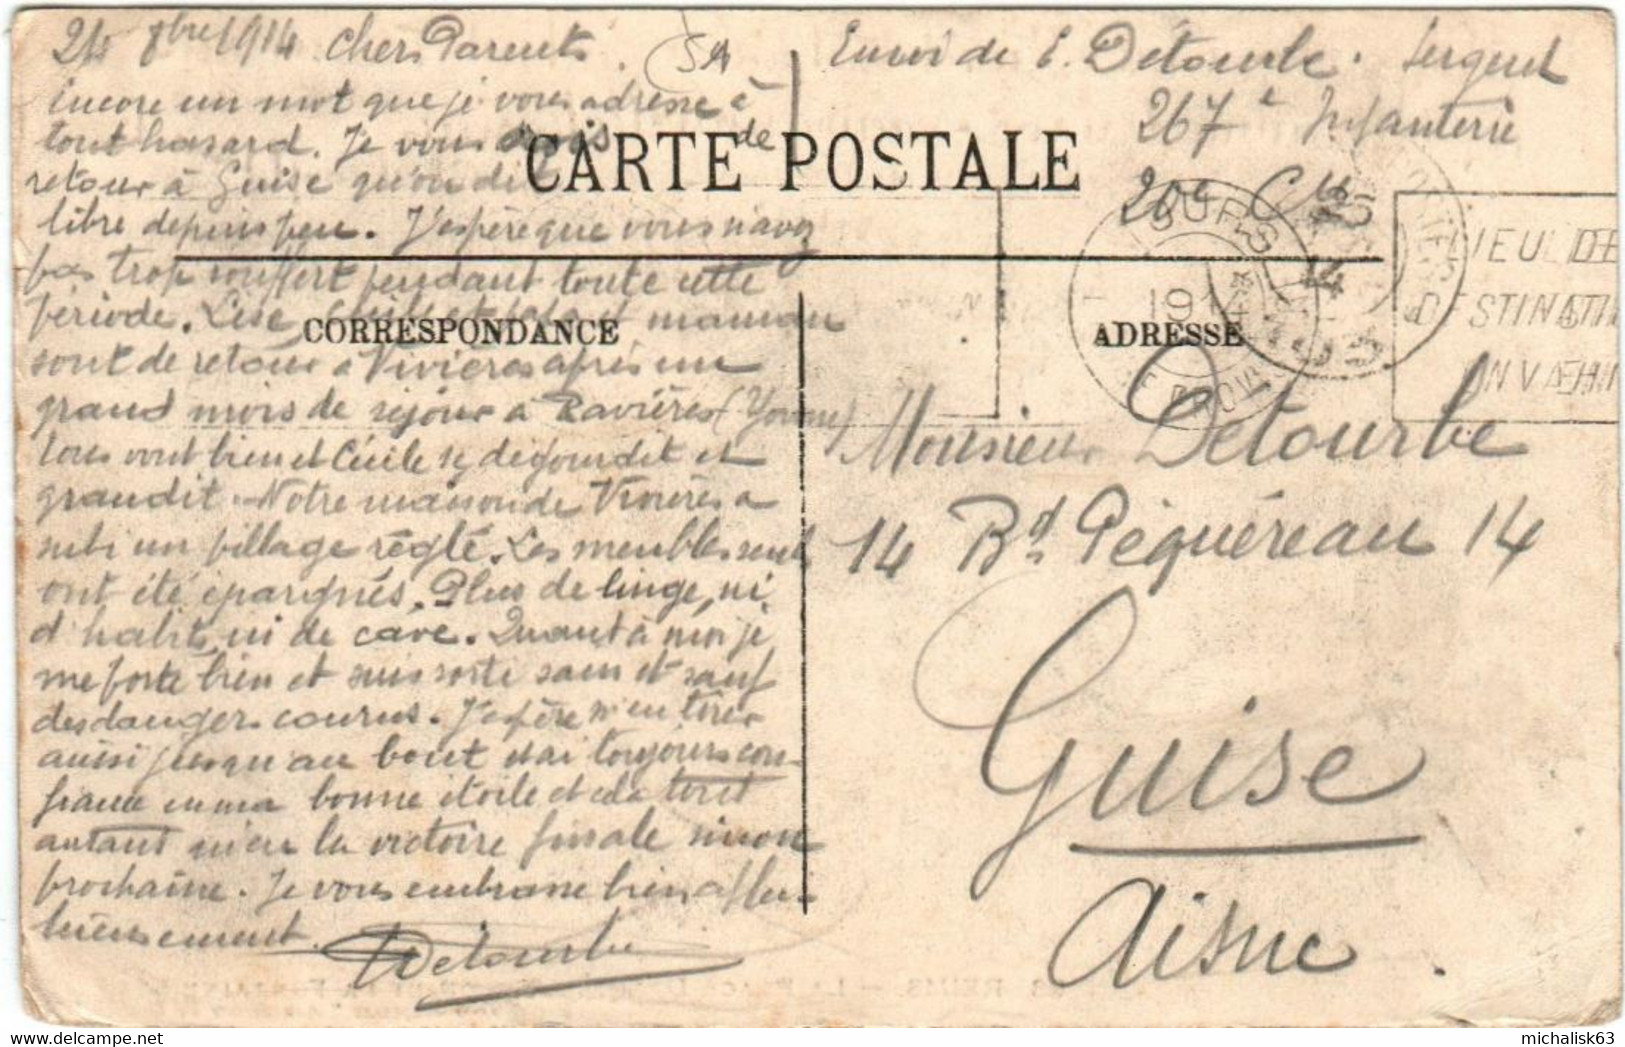 24 8bre 1914 Chers Parents.
Encore un mot que je vous adresse à
tout hasard. Je vous crois de
retour à Guise qu'on dit
libre depuis peu. J'espère que vous n'avez
pas trop souffert pendant toute cette
période. Lise, Cécile et maman
sont de retour à Vivières après un
grand mois de séjour à Ravières (Yonne)
tous vont bien et Cécile se dégourdit et
grandit. Notre maison de Vivières a
subi un pillage réglé. Les meubles seuls
ont été épargnés. Plus de linge, ni
d'habits, ni de cave. Quant à moi je
me porte bien et suis sorti sain et sauf
des dangers courus. J'espère m'en tirer
aussi jusqu'au bout et ai toujours con-
fiance en ma bonne étoile et cela tout
autant qu'en la victoire finale sinon
prochaine. Je vous embrasse bien affec-
tueusement.
Detourbe
Envoi de E. Détourbe. Sergent
267e Infanterie
20e Cie
CARTE POSTALE
CORRESPONDANCE
ADRESSE
Monsieur Detourbe
14 Bd Péquéreau 14
Guise
Aisne.
LIEU DE
DESTINATI
ENVAHI
REIMS. - La
michalisk63